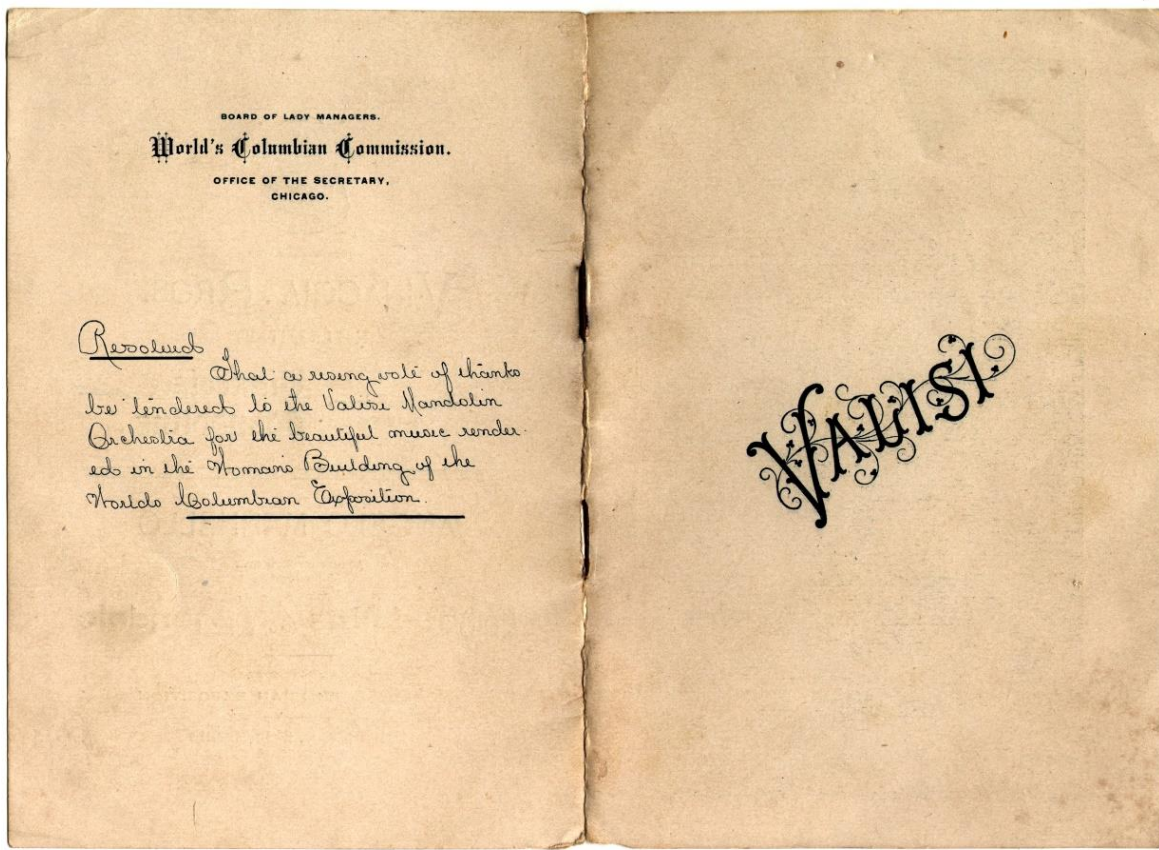 BOARD OF LADY MANAGERS.
World's Columbian Commission.
OFFICE OF THE SECRETARY,
CHICAGO.
Resolved
That a rising vote of thanks
be tendered to the Valisi Mandolin
Orchestra for the beautiful music render-
ed in the Womans Building of the
Worlds Columbian Exposition.
VALISI